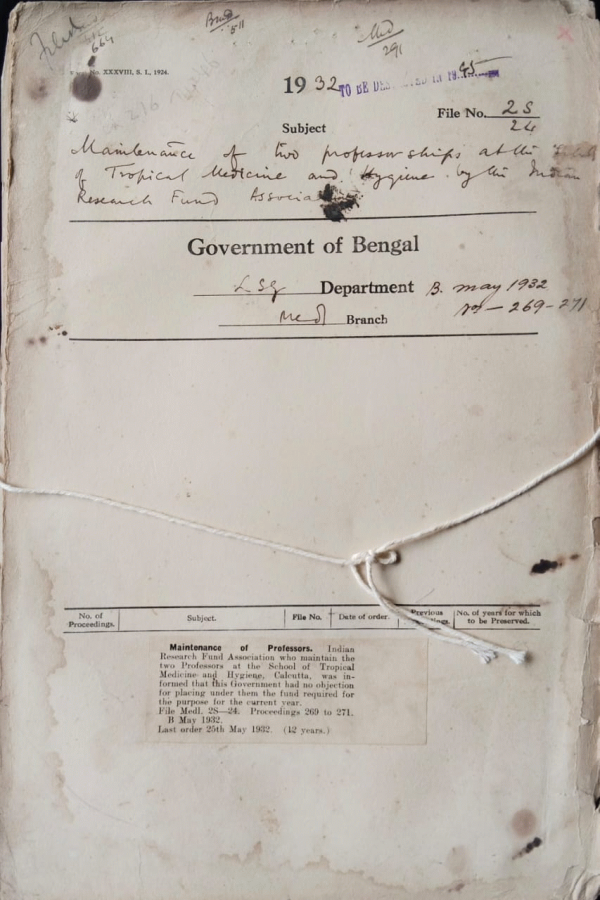 Filed
664
Bmd
511
Med
291
Form No. XXXVIII, S. I., 1924.
1932 TO BE DESTROYED IN 19 45
File No. 2S
24
Subject
Maintenance of two professorships at the
of Tropical Medicine and Hygiene by the Indian
Research Fund Association
Government of Bengal
LSG Department B. May 1932
Med Branch Nos — 269-271
No. of Proceedings. Subject. File No. Date of order. Previous No. of years for which to be Preserved.
Maintenance of Professors. Indian
Research Fund Association who maintain the
two Professors at the School of Tropical
Medicine and Hygiene, Calcutta, was in-
formed that this Government had no objection
for placing under them the fund required for
the purpose for the current year.
File Medl. 2S—24. Proceedings 269 to 271.
B May 1932.
Last order 25th May 1932. (12 years.)